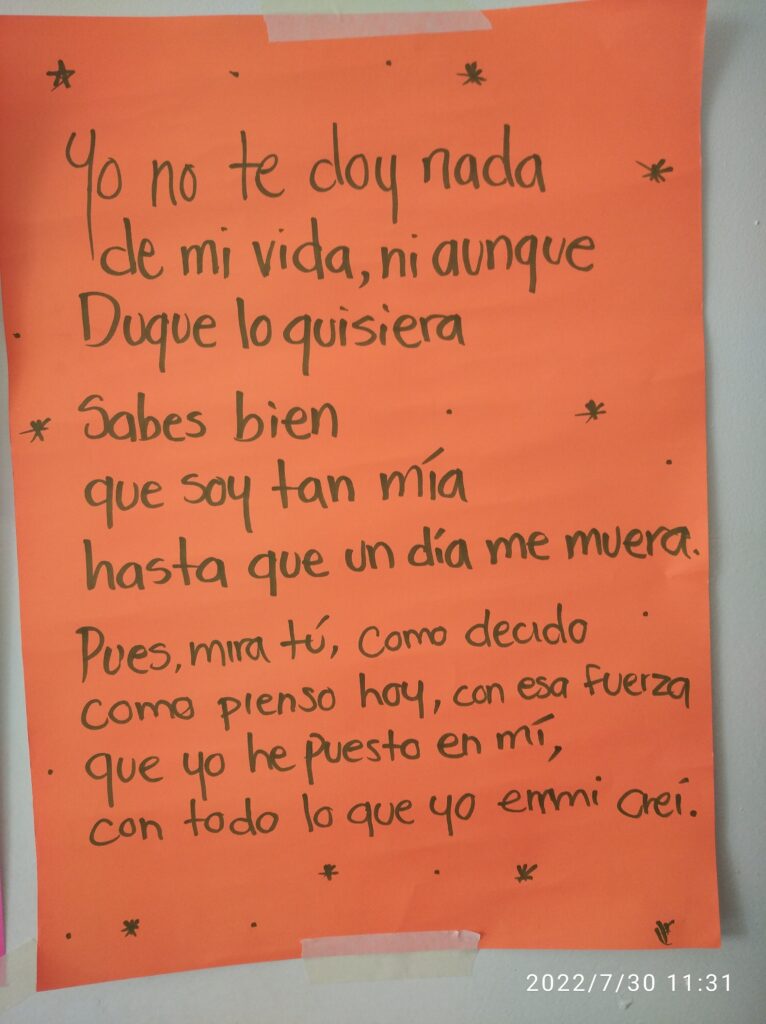 Yo no te doy nada
de mi vida, ni aunque
Duque lo quisiera
Sabes bien
que soy tan mía
hasta que un día me muera.
Pues, mira tú, como decido
como pienso hoy, con esa fuerza
que yo he puesto en mí,
con todo lo que yo emmi creí.
2022/7/30 11:31